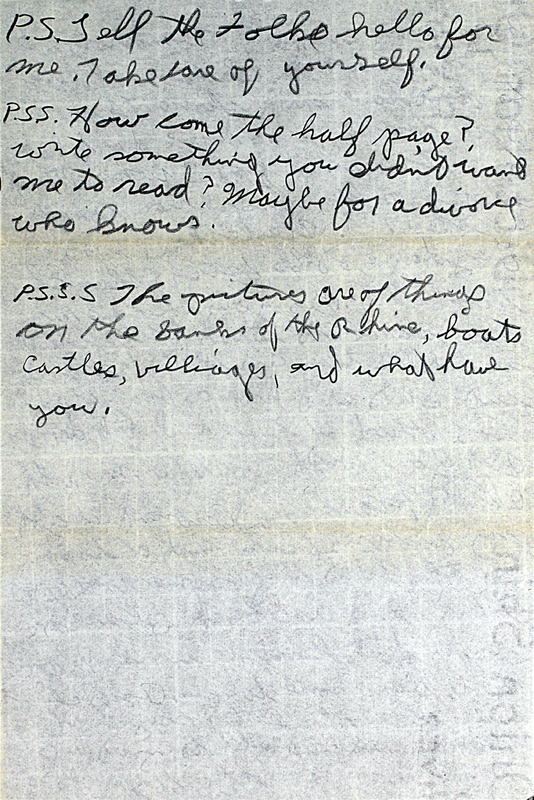 P.S. Tell the Folks hello for
me. Take care of yourself.
PSS. How come the half page?
write something you didn't want
me to read? Maybe for a divorce
who knows.
P.S.S.S The pictures are of things
on the banks of the Rhine, boats
Castles, villiages, and what have
you.